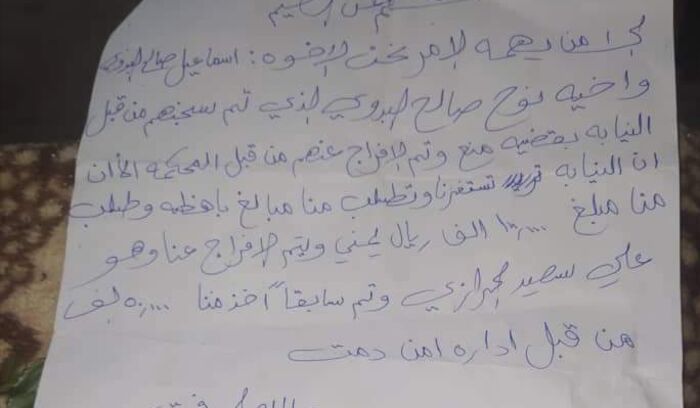 كل من يهمه الامر نحن الاخوه : اسماعيل صالح البدوي
واخيه نوح صالح البدوي الذي تم سجنهم من قبل
النيابه بقضيه منع وتم الافراج عنهم من قبل المحكمه الا ان
ان النيابه تريد تستفزنا وتطلب منا مبالغ باهظه وطلب
منا مبلغ ١٠٠,٠٠٠ الف ريال يمني ويتم الافراج عنا وهو
علي سعيد وتم سابقاً اخذ منا ٥٠,٠٠٠ الف
من قبل اداره امن دمت